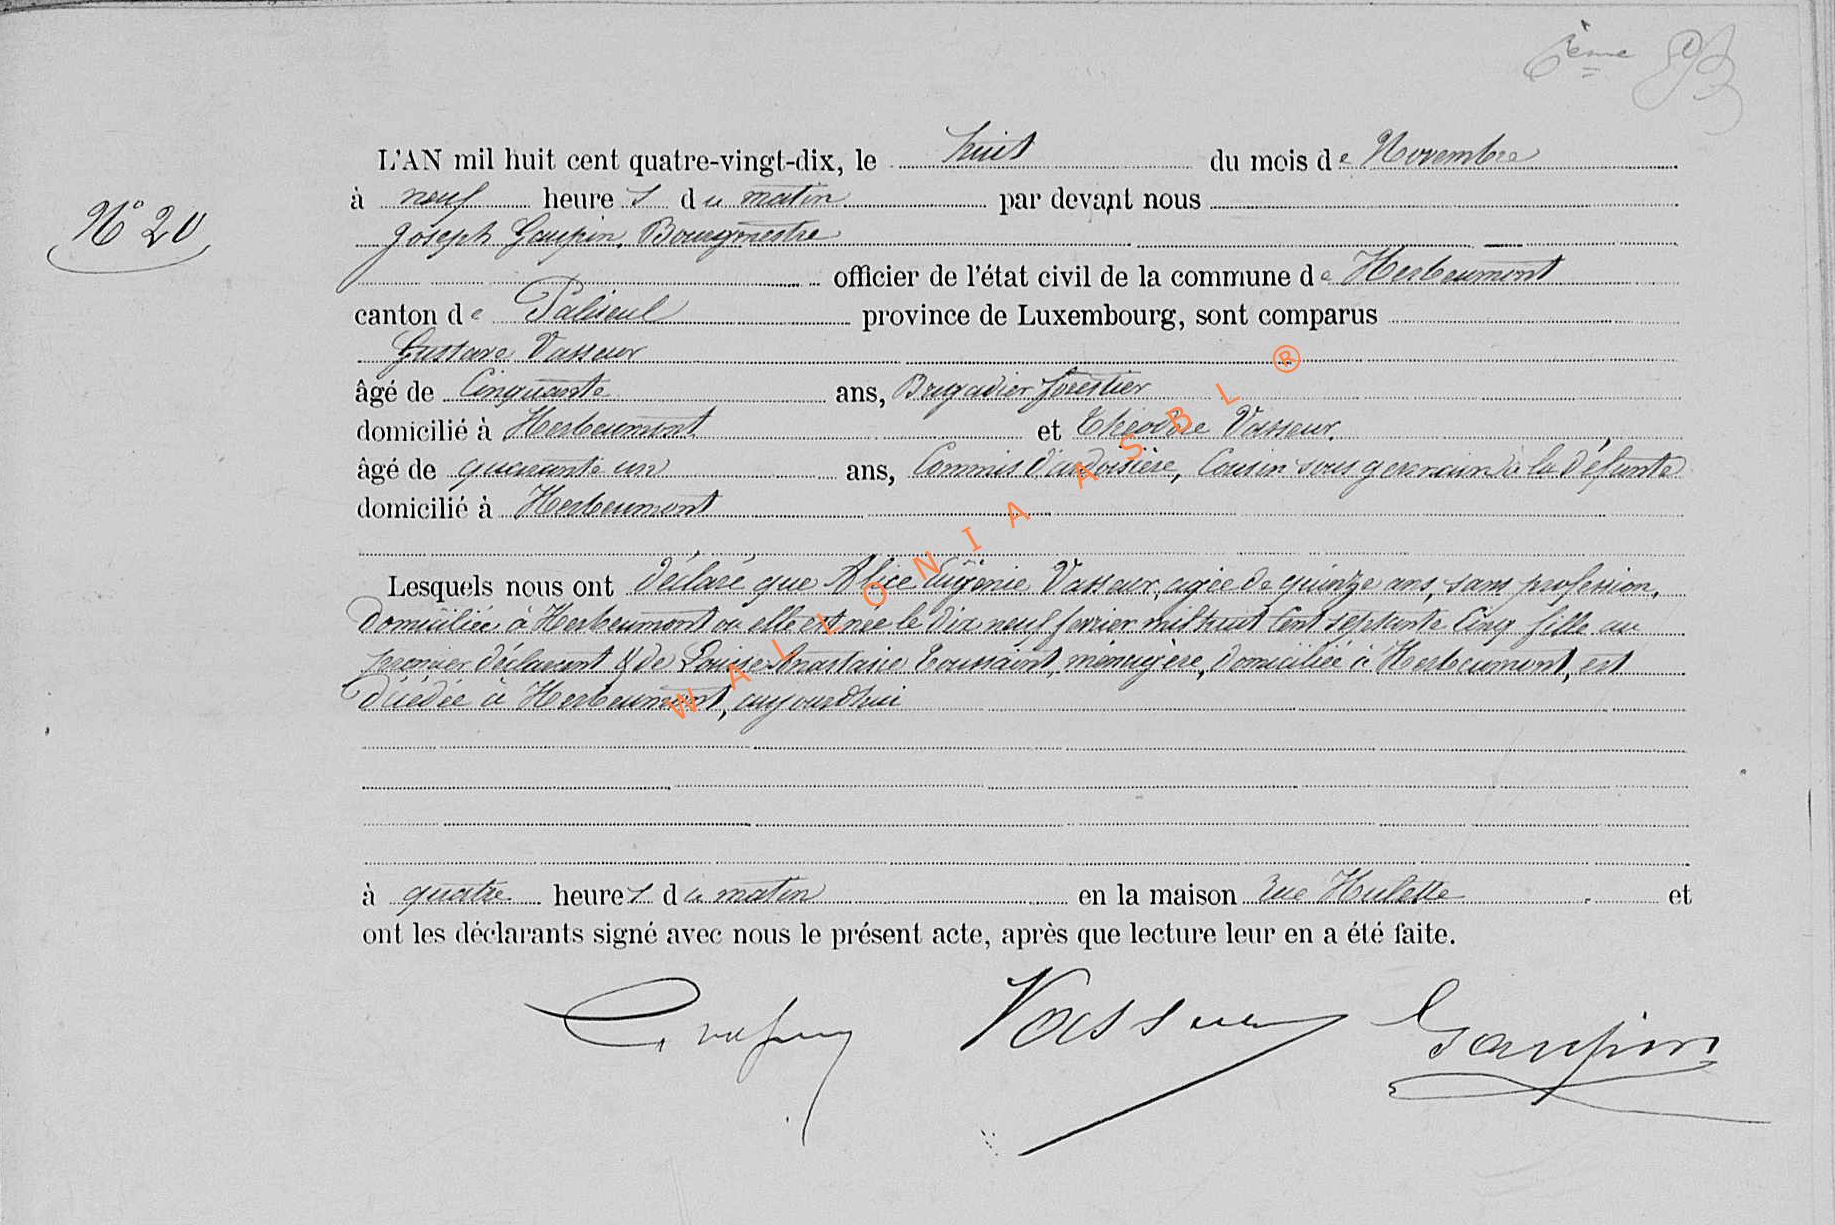 6ème
N° 20
L'AN mil huit cent quatre-vingt-dix, le huit du mois de Novembre
à neuf heures du matin par devant nous
Joseph Gaupin, Bourgmestre
officier de l'état civil de la commune de Herbeumont
canton de Paliseul province de Luxembourg, sont comparus
Gustave Vasseur
âgé de Cinquante ans, Brigadier forestier
domicilié à Herbeumont et Théodore Vasseur,
âgé de quarante un ans, Commis d'ardoisière, Cousin sous germain à la défunte
domicilié à Herbeumont
Lesquels nous ont déclaré que Alice Eugénie Vasseur, agée de quinze ans, sans profession,
domiciliée à Herbeumont ou elle est née le dix neuf fevrier mil huit Cent septante Cinq fille au
premier déclarant & de Louise Anastasie Toussaint, ménagère, domiciliée à Herbeumont, est
décédée à Herbeumont, aujourdhui
à quatre heures du matin en la maison rue Hulette et
ont les déclarants signé avec nous le présent acte, après que lecture leur en a été faite.
Vasseur Gaupin
WALLONIA ASBL ®